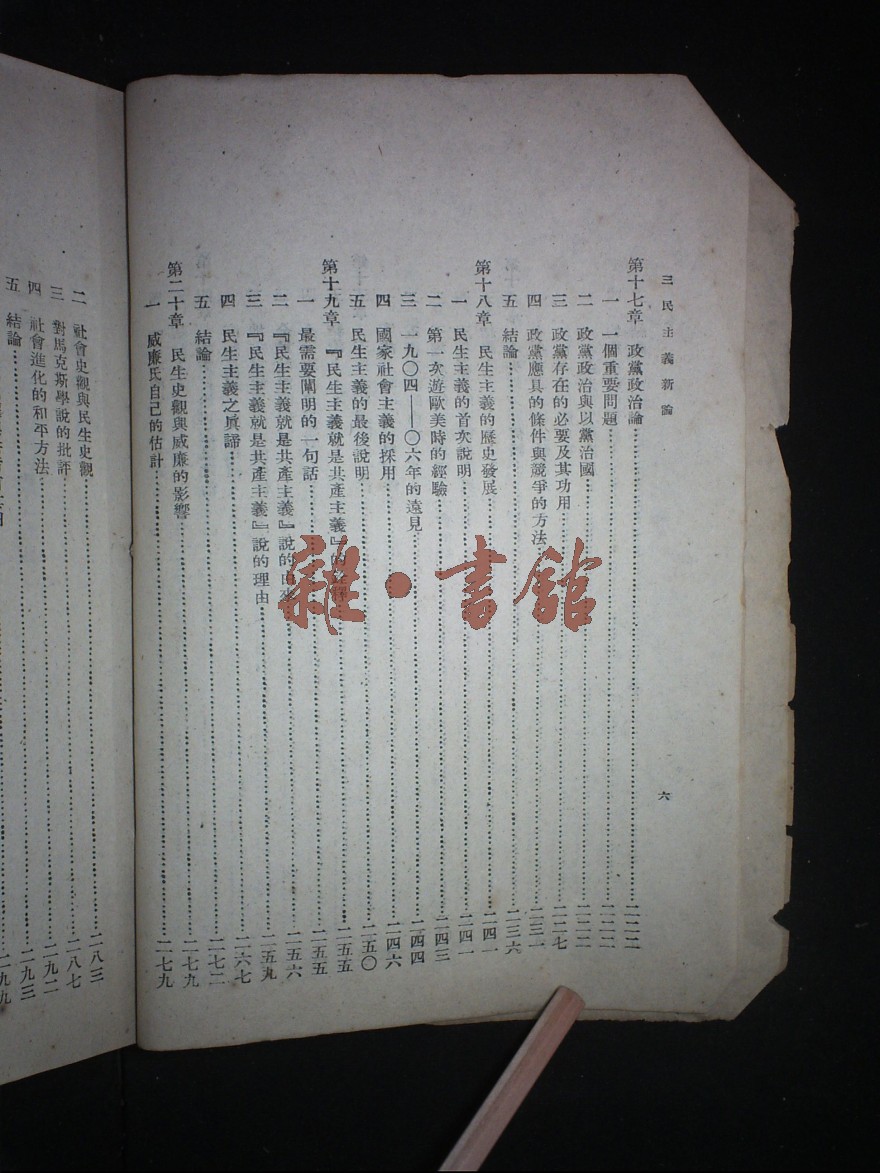 三民主義新論
六
第十七章 政黨政治論……二二二
一 一個重要問題……二二二
二 政黨政治與以黨治國……二二二
三 政黨存在的必要及其功用……二二七
四 政黨應具的條件與競爭的方法……二三一
五 結論……二三六
第十八章 民生主義的歷史發展……二四一
一 民生主義的首次說明……二四一
二 第一次遊歐美時的經驗……二四三
三 一九〇四——〇六年的遠見……二四四
四 國家社會主義的採用……二四六
五 民生主義的最後說明……二五〇
第十九章 『民生主義就是共產主義』的……二五五
一 最需要闡明的一句話……二五五
二 『民生主義就是共產主義』說的……二五六
三 『民生主義就是共產主義』說的理由……二五九
四 民生主義之眞諦……二六七
五 結論……二七二
第二十章 民生史觀與威廉的影響……二七九
一 威廉氏自己的估計……二七九
二 社會史觀與民生史觀……二八三
三 對馬克斯學說的批評……二八七
四 社會進化的和平方法……二九二
五 結論……二九三
二九九
雜·書館